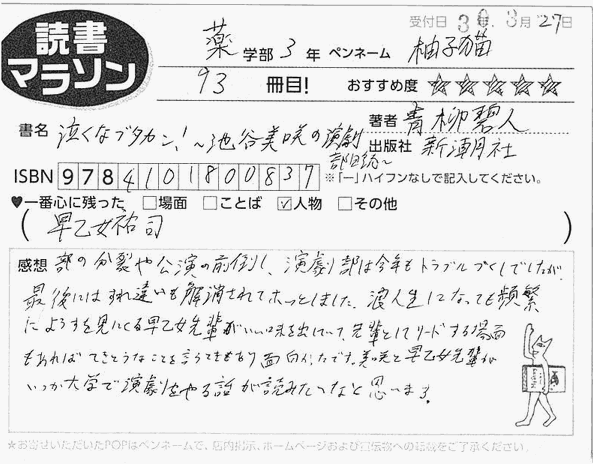 読書マラソン
受付日 30年 3月 27日
薬 学部 3 年 ペンネーム 柚子猫
93 冊目! おすすめ度 ☆☆☆☆☆
書名 泣くなブタカン!~池谷美咲の演劇部日誌~
著者名 青柳碧人
出版社 新潮社
ISBN 9784101800837 ※「ー」ハイフンなしで記入してください。
♥一番心に残った □場面 □ことば ☑人物 □その他
(早乙女祐司)
感想 部の分裂や公演の前倒し、演劇部は今年もトラブルづくしでしたが、
最後にはすれ違いも解消されてホッとしました。浪人生になっても頻繁
にようすを見にくる早乙女先輩がいい味を出していて、先輩としてリードする場面
もあれば てきとうなことを言うてきもあり面白かったです。美咲と早乙女先輩が
いつか大学で演劇をやる話が読みたいなと思います。
★お寄せいただいたPOPはペンネームで、店内掲示、ホームページおよび宣伝物への転載をご了承ください。